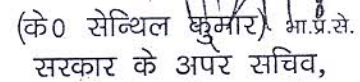 (के0 सेन्थिल कुमार) भा.प्र.से.
सरकार के अपर सचिव,